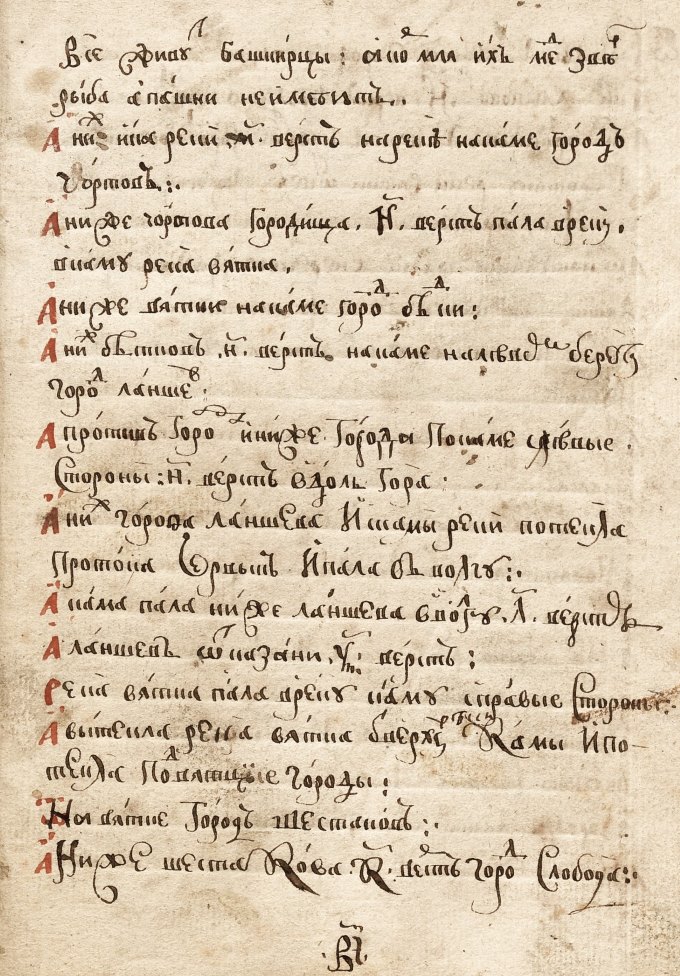 Все живꙋт башкирцы: а кормля ихъ мед зверь
рыба а пашни не имеютъ.
А ниж ики реки м҃. верстъ на реке на каме городъ
Чорстовъ:.
А ниже чорстова городища, н҃. верстъ пала в рекꙋ.
в камꙋ река вятка.
А ниже вятки на каме город бѣтки:
А ниж бѣтковъ .н҃. верстъ на каме на левом берегꙋ
город лаишев
А против город и ниже города по каме с правые
стороны: н҃. верстъ вдоль гора:
А ниж города лаишева ис камы реки потекла
протока и пала въ волгꙋ:.
А кама пала ниже лаишева в волгꙋ .л҃. верстъ
А лаишевъ ѿ казани верстъ:
Река вятка пала в рекꙋ камꙋ с правые стороны:.
А вытекла река вятка верхъ реки камы и по-
текла под вятцкие городы:
На вятке городъ шестаковъ:.
А ниже шестакова .к҃. верстъ город слобода:.